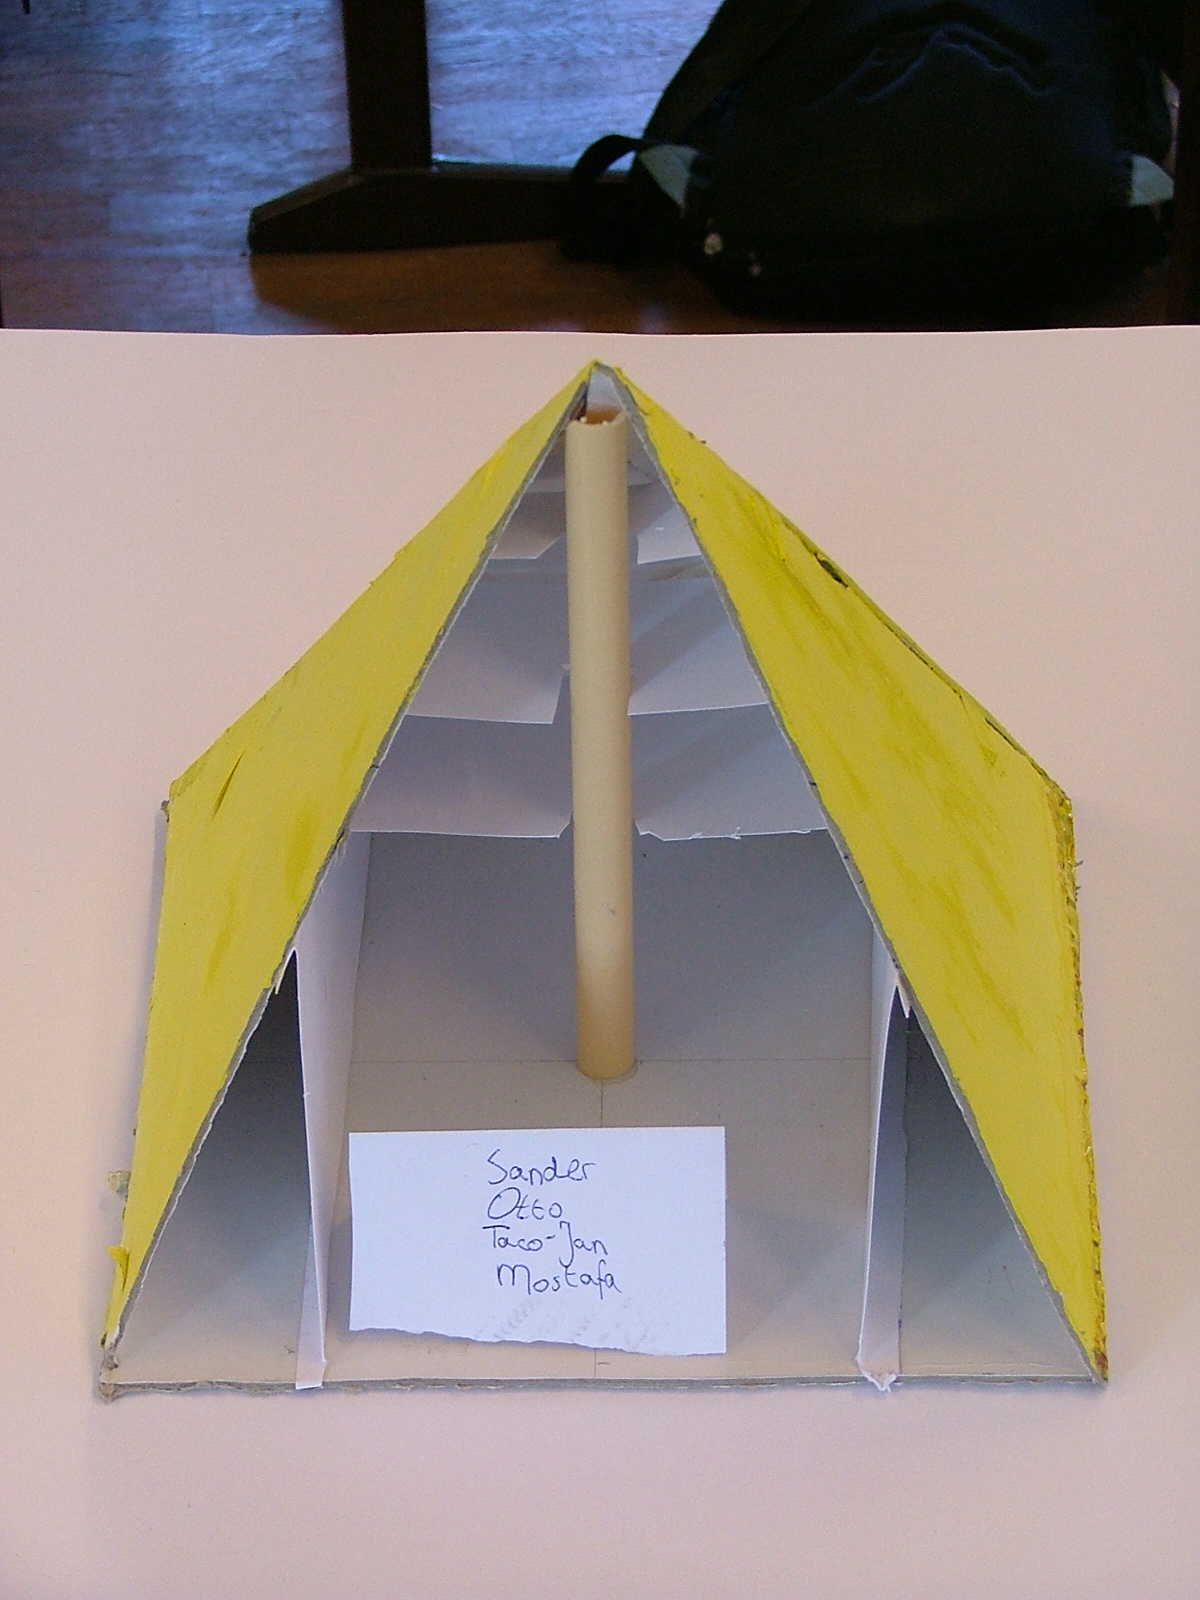 Sander
Otto
Taco-Jan
Mostafa